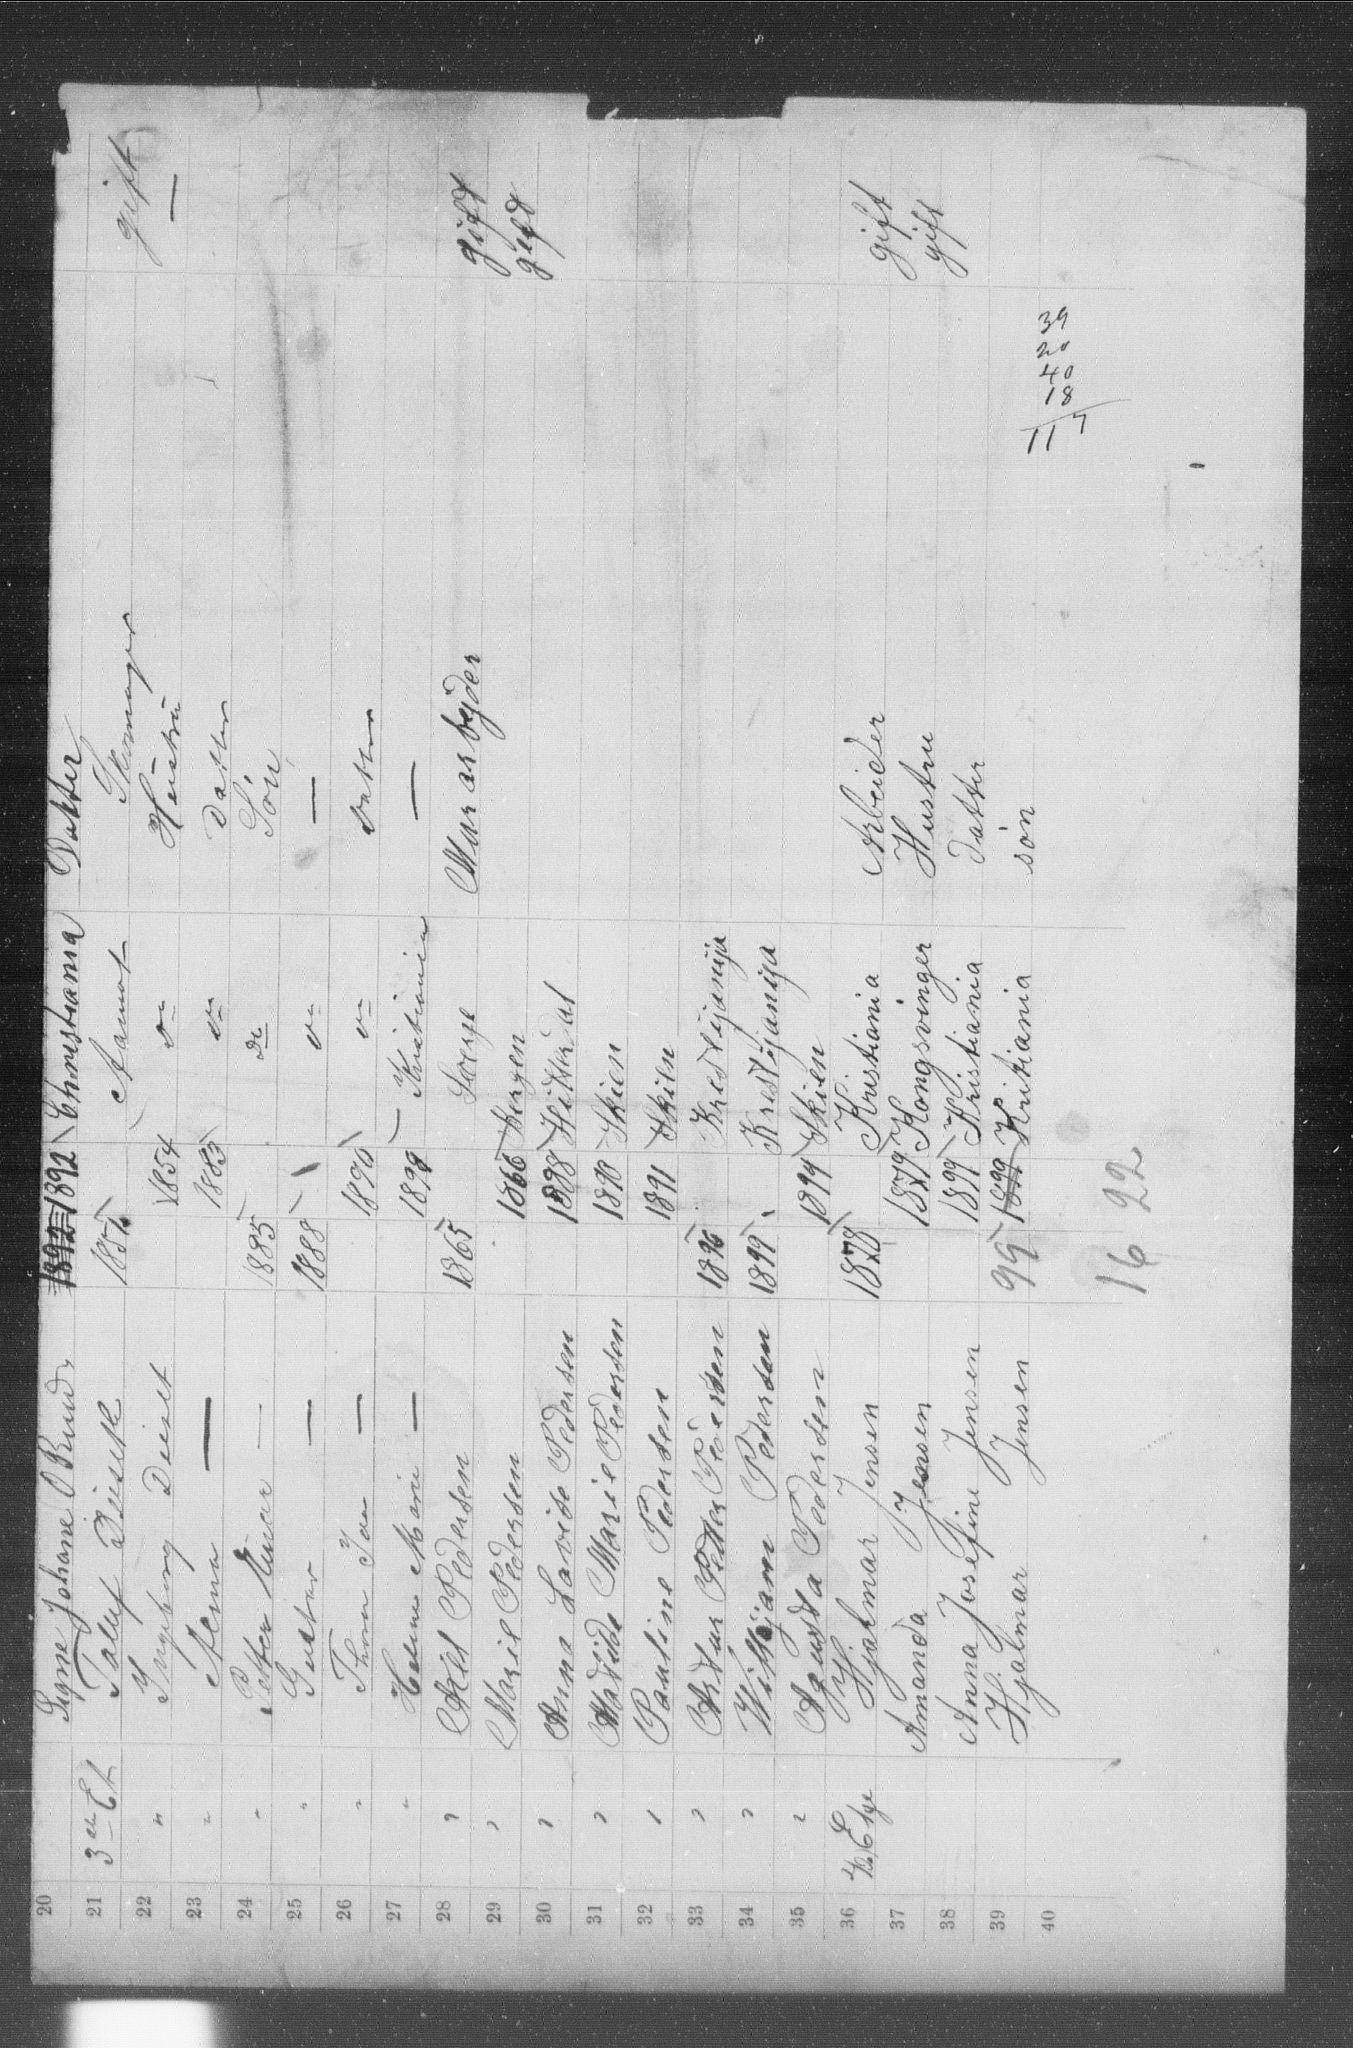 20 Signe Johane Ruud 1892 1892 Christiania Datter
21 3die Et 185 Aamot gift
22 " Ingeborg 1854 do Hustru —
23 " Alma — 1883 do Datter
24 " Petter Einar — 1885 do Sön
25 " Gustav — 1888 do —
26 " Thora — 1890 do Datter
27 " Helene Marie — 1898 Kristiania —
28 " Axel Pedersen 1865 Murarbejder gift
29 " Marie Pedersen 1866 Bergen gift
30 " Anna Lovise Pedersen 1888 Hitterdal
31 " Matilde Marie Pedersen 1890 Skien
32 " Pauline Pedersen 1891 Skien
33 " Artur Petter Pedersen 1896 Krestijanija
34 " Willijam Pedersen 1899 Krestijanija
35 " Agusta Pedersen 1894 Skien
36 4de Etge Hjalmar Jensen 1878 Kristiania Arbeider gift
37 Amanda Jensen 1879 Kongsvinger Hustru gift
38 Anna Josefine Jensen 1899 Kristiania Datter
39 Hjalmar Jensen 99 1899 Kritiania sön
40
39
20
40
18
117
16 22